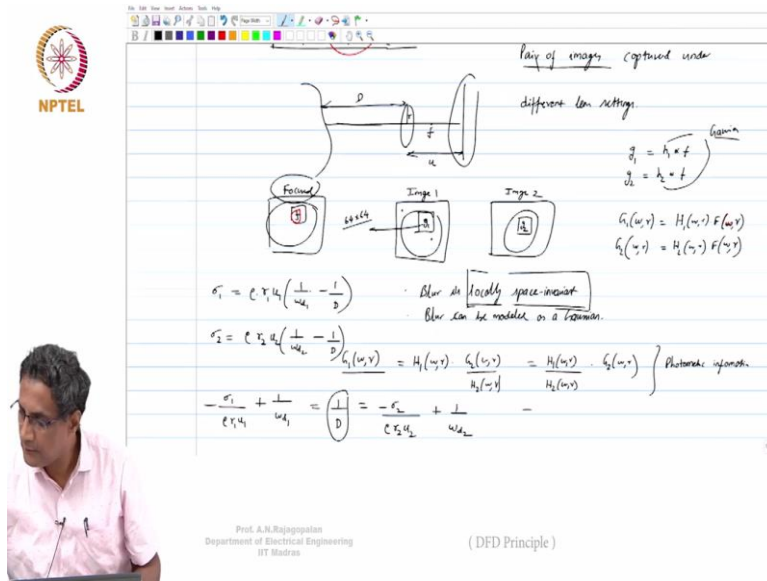 File Edit View Insert Actions Tools Help
Page Width
B I
NPTEL
Pair of images captured under
different len settings.
D
r
f
u
Gaussian
g₁ = h₁ * f
g₂ = h₂ * f
Focused
Image 1
Image 2
f
64x64
g₁
g₂
G₁(w,v) = H₁(w,v) F(w,v)
G₂(w,v) = H₂(w,v) F(w,v)
σ₁ = ρ r₁ u₁ (1/wd₁ - 1/D)
· Blur is locally space-invariant
· Blur can be modeled as a Gaussian.
σ₂ = ρ r₂ u₂ (1/wd₂ - 1/D)
G₁(w,v) = H₁(w,v) · G₂(w,v)/H₂(w,v) = H₁(w,v)/H₂(w,v) · G₂(w,v) } Photometric information
-σ₁/ρr₁u₁ + 1/wd₁ = 1/D = -σ₂/ρr₂u₂ + 1/wd₂ =
Prof. A.N.Rajagopalan
Department of Electrical Engineering
IIT Madras
( DFD Principle )